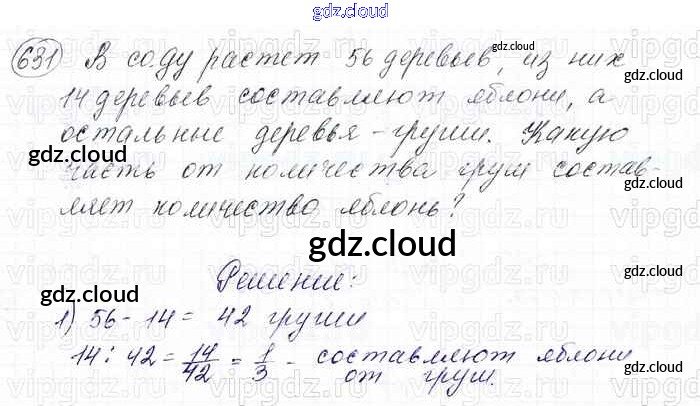 gdz.cloud
631 В соду растет 56 деревьев, из них
14 деревьев составляют яблони, а
остальные деревья - груши. Какую
часть от количества груш состав-
ляет количество яблонь?
gdz.cloud
Решение:
1) 56 - 14 = 42 груши
14 : 42 = 14/42 = 1/3 - составляют яблони
от груш.
gdz.cloud
gdz.cloud
gdz.cloud
gdz.cloud
gdz.cloud
gdz.cloud
gdz.cloud